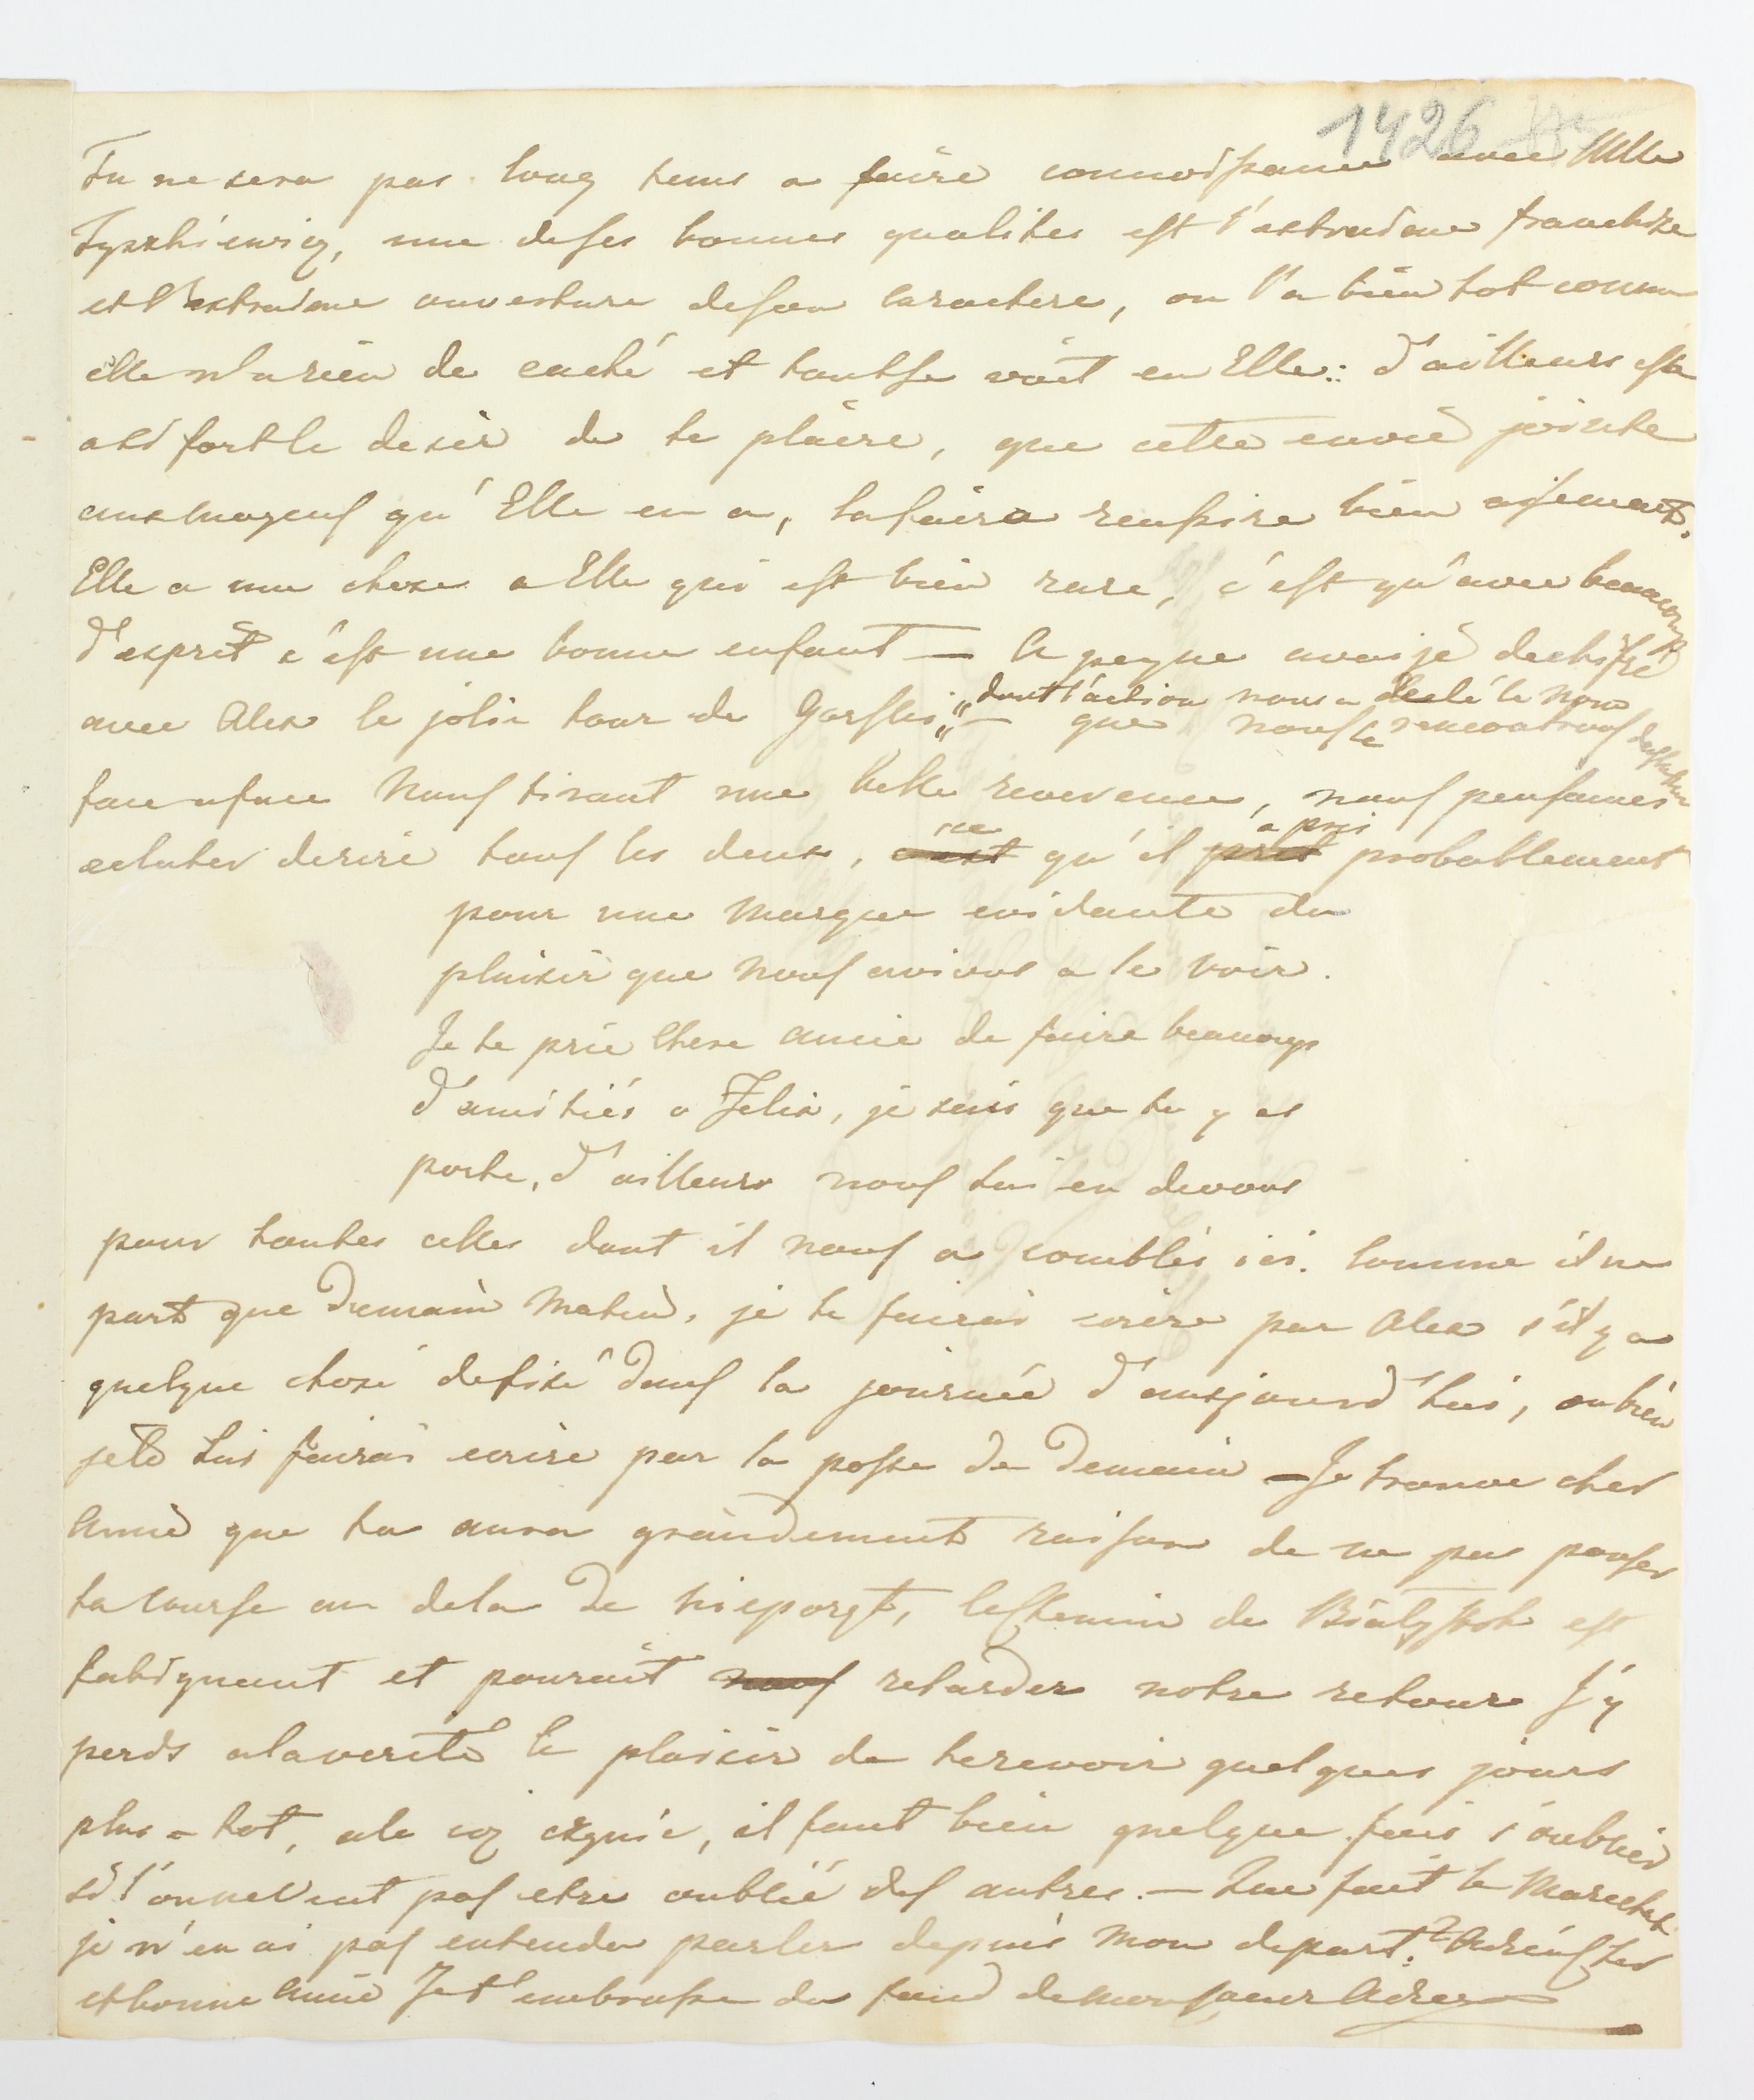 1426
Tu ne sera pas long tems a faire connoissance avec Mlle
Tyszkiewicz, une de ses bonnes qualites est l'extreme franchise
et l'extreme ouverture de son caractere, on l'a bientot connu
elle n'a rien de caché et tout se voit en Elle: d'ailleurs Elle
a si fort le desir de te plaire, que cette envie jointe
aux moyens qu'Elle en a, la faira reussire bien aisement.
Elle a une chose a Elle qui est bien rare, c'est qu'avec beaucoup
d'esprit c'est une bonne enfant — A peyne avoi je dechifré
avec Alex le jolie tour de Gorski, "dont l'action nous a decelé le nom" — que nous le rencontrons
face a face Nous tirant une belle reverence, nous pensames
eclater de rire tous les deux, ce qu'il a pris probablement
pour une marque evidante du
plaisir que nous avions a le voir.
Je te prie Chere amie de faire beaucoup
d'amitiés a Felix, je sais que tu y es
porté, d'ailleurs nous lui en devons
pour toutes celles dont il nous a comblés ici. Comme il ne
part que Demain Matin, je te fairai ecrire par Alex s'il y a
quelque chose de fixé dans la journée d'aujourd'hui, ou bien
je le lui fairai ecrire par la poste de Demain — Je trouve cher
Amie que tu aura grandement raison de ne pas pousser
ta course au dela de Nieporęt, le chemin de Białystok est
fatiguant et pourait nous retarder notre retour J'y
perds a la verité le plaisir de te revoir quelques jours
plus-tot, ale coż czynić, il faut bien quelque fois s'oublier
si l'on ne veut pas etre oublié des autres. — Que fait le Marechal
je n'en ai pas entendu parler depuis mon depart? Adieu cher
et bonne Amie Je t'embrasse du fond de mon coeur Adieu